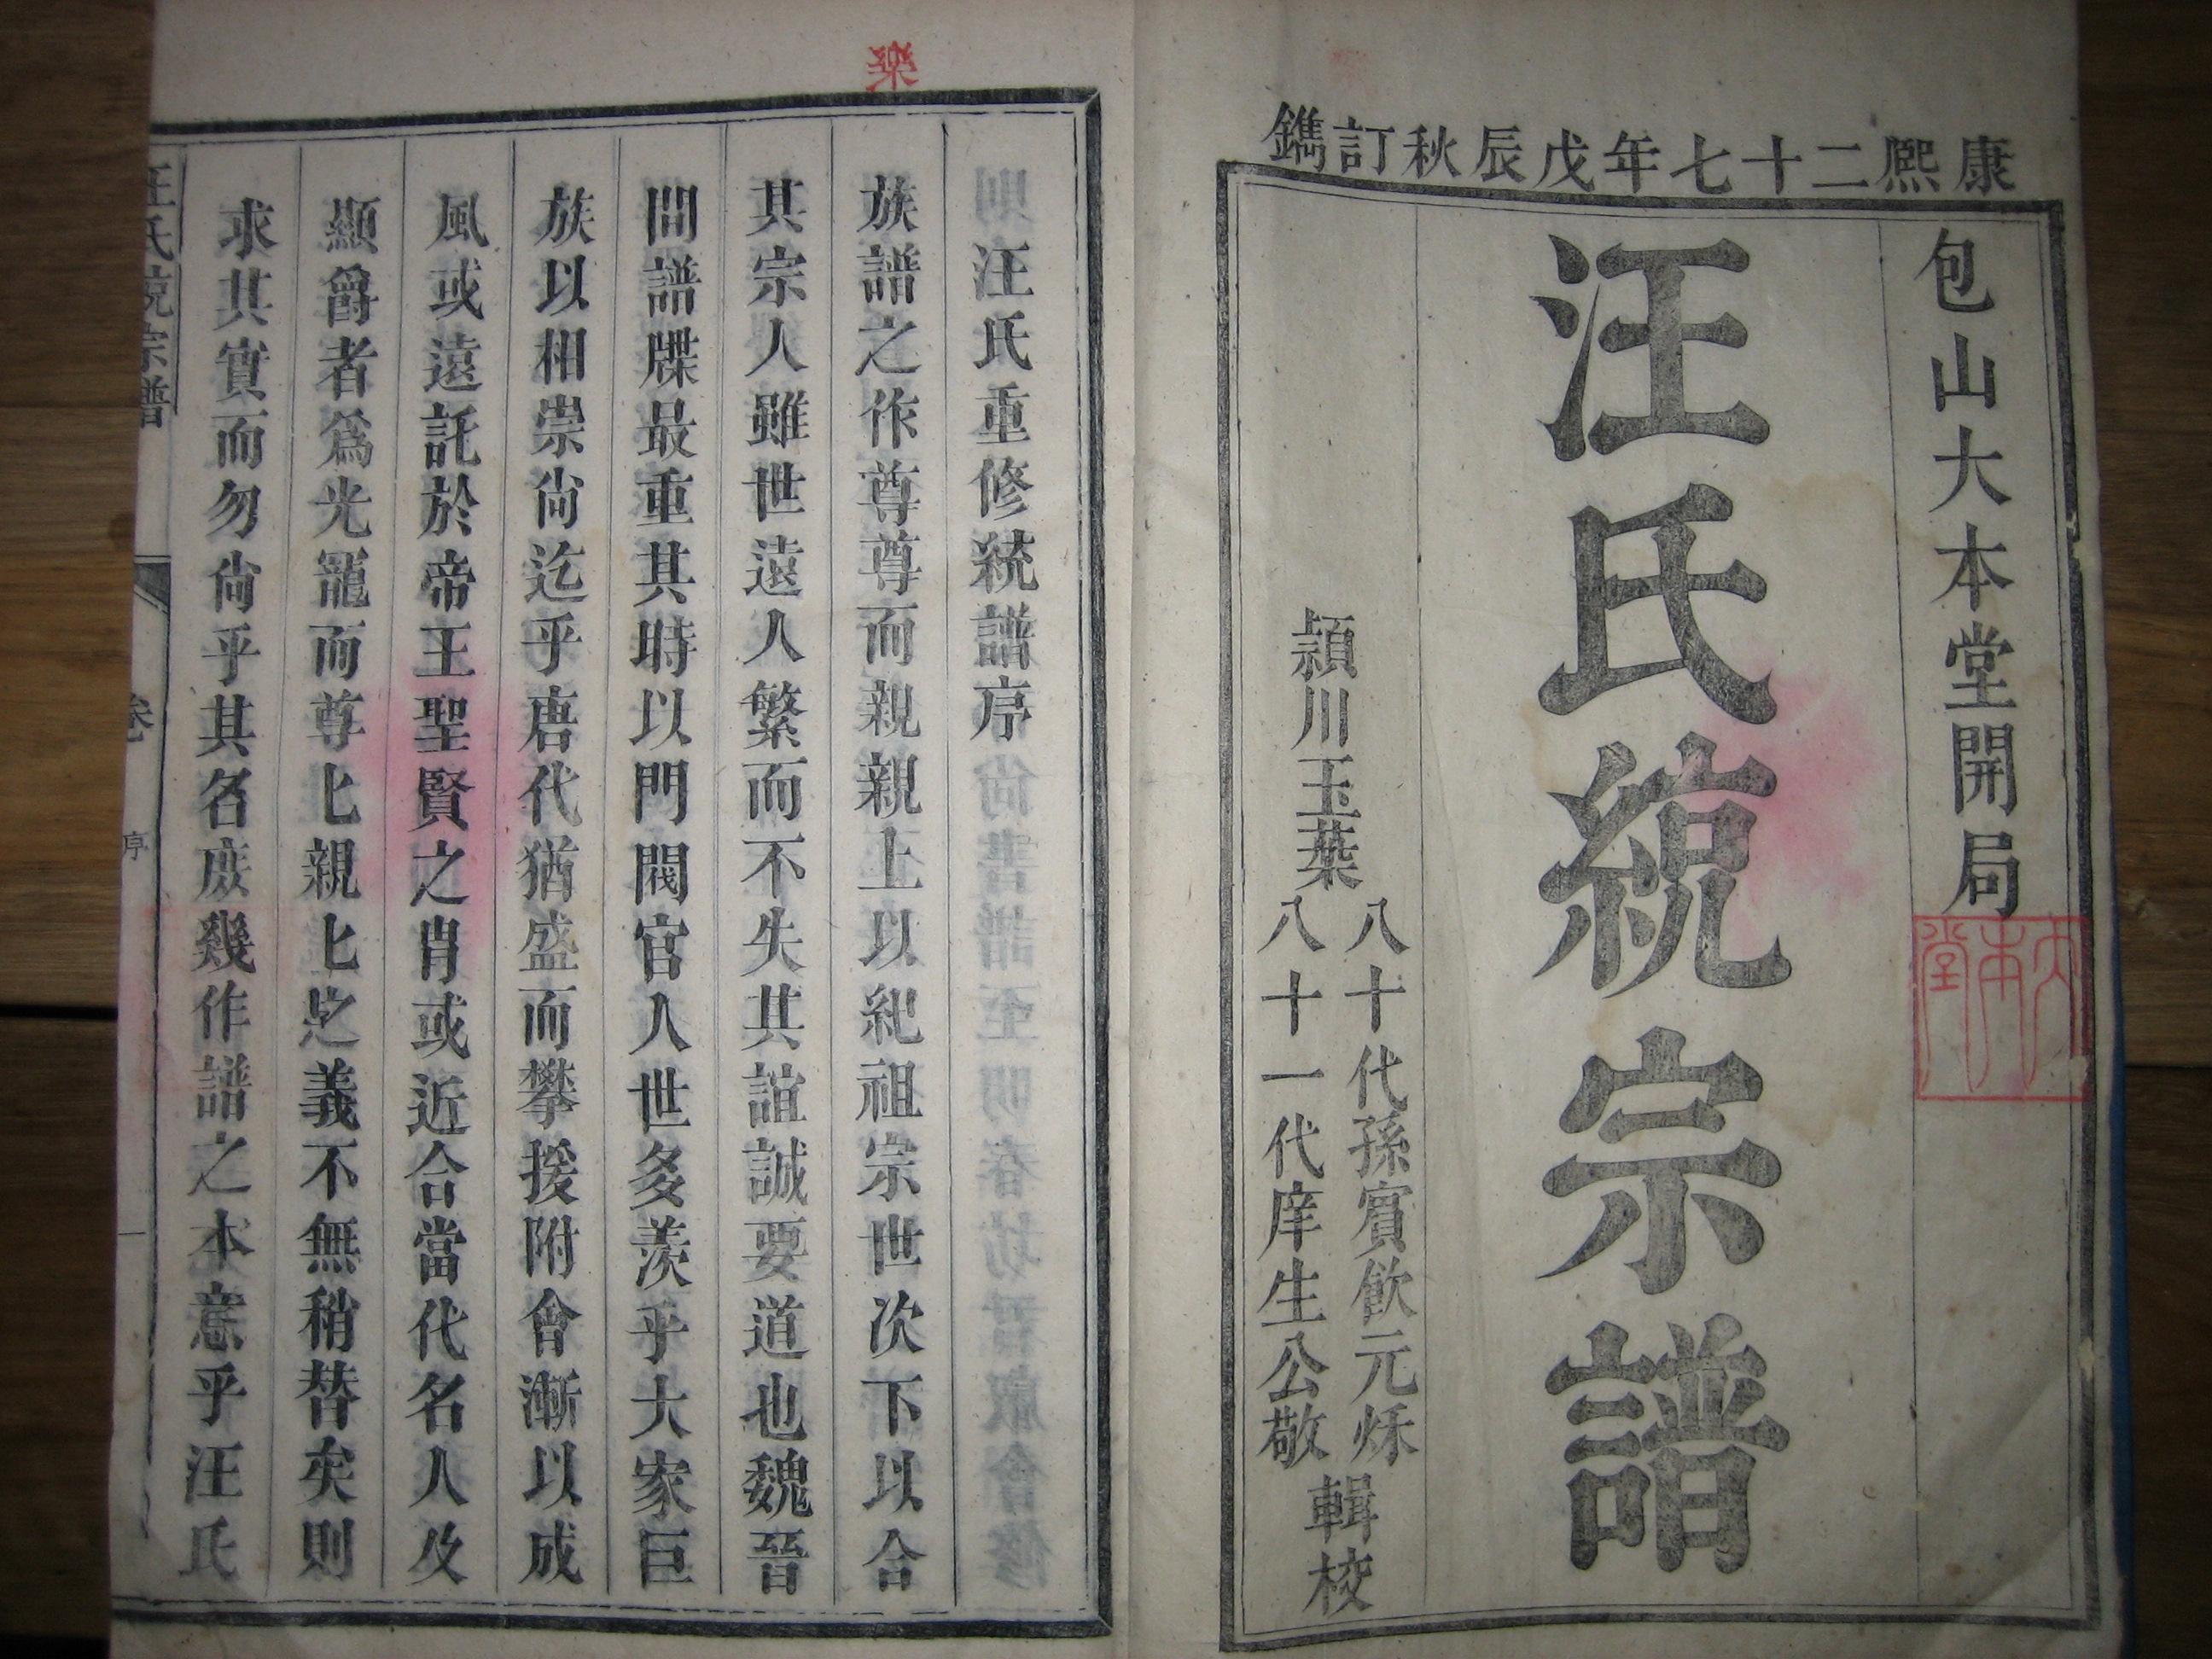 康熙二十七年戊辰秋訂鐫
包山大本堂開局
汪氏統宗譜
八十代孫
八十一代庠生公敬
輯校
樂
汪氏重修統譜序
族譜之作尊尊而親親上以紀祖宗世次下以合
其宗人雖世遠人繁而不失其誼誠要道也魏晉
間譜牒最重其時以門閥官人世多羨乎大家巨
族以相崇尚迄乎唐代猶盛而攀援附會漸以成
風或遠託於帝王聖賢之胄或近合當代名人及
顯爵者為光寵而尊匕親匕之義不無稍替矣則
求其實而勿尚乎其名庶幾作譜之本意乎汪氏
汪氏統宗譜
序